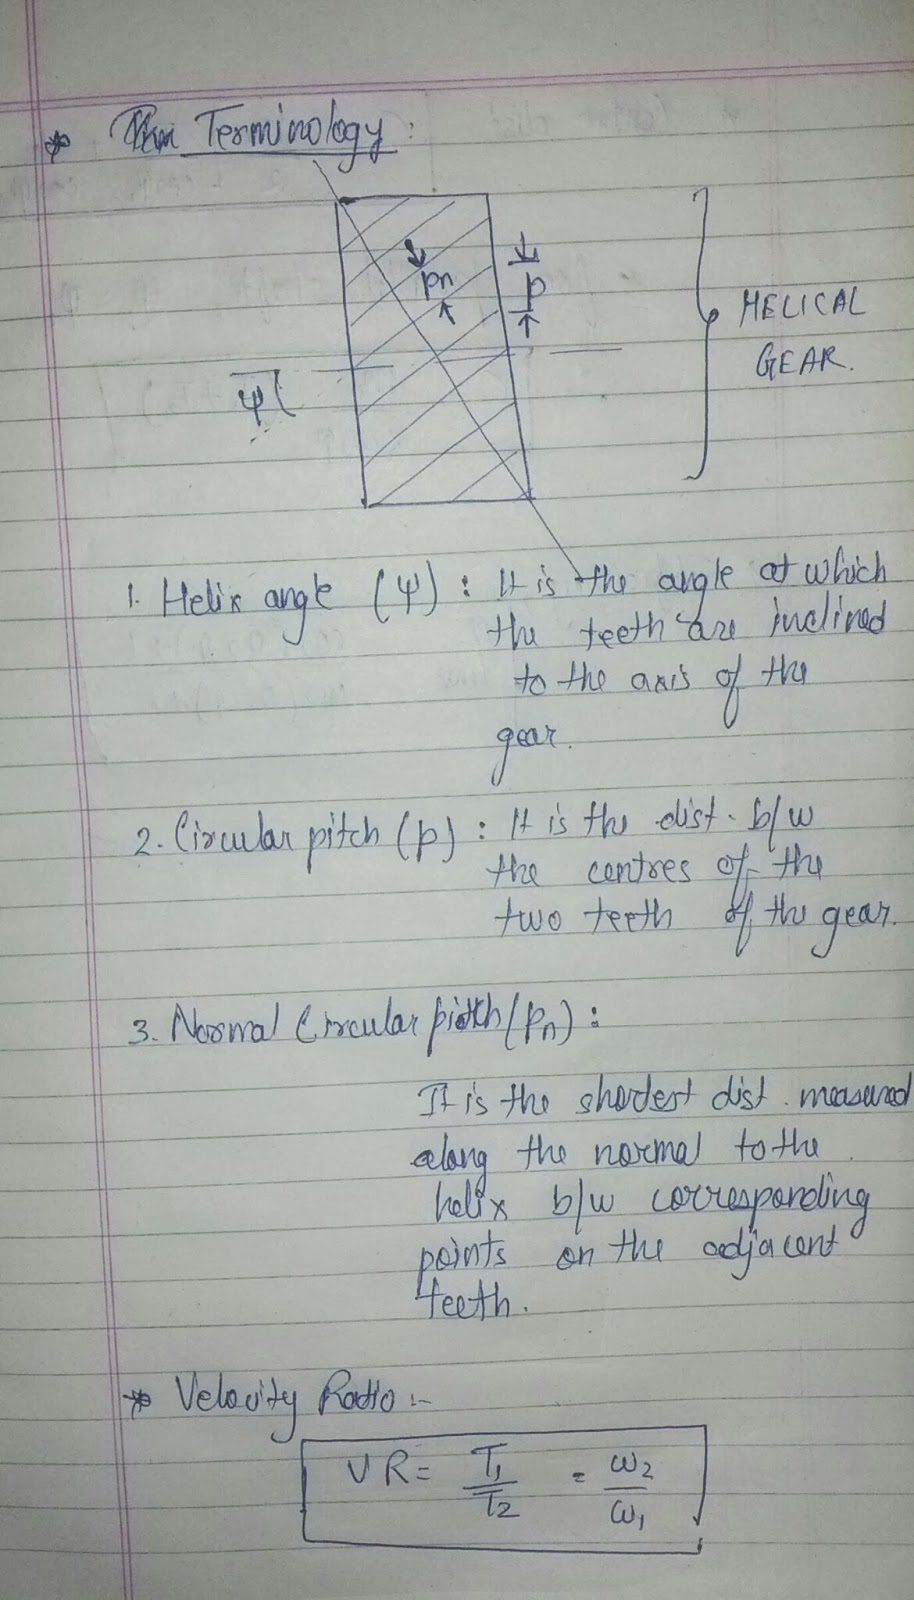 * Terminology :
pn
p
HELICAL
GEAR.
ψ
1. Helix angle (ψ) : It is the angle at which
the teeth are inclined
to the axis of the
gear.
2. Circular pitch (p) : It is the dist. b/w
the centres of the
two teeth of the gear.
3. Normal Circular pitch (pn) :
It is the shortest dist. measured
along the normal to the
helix b/w corresponding
points on the adjacent
teeth.
* Velocity Ratio :-
VR = T1/T2 = ω2/ω1